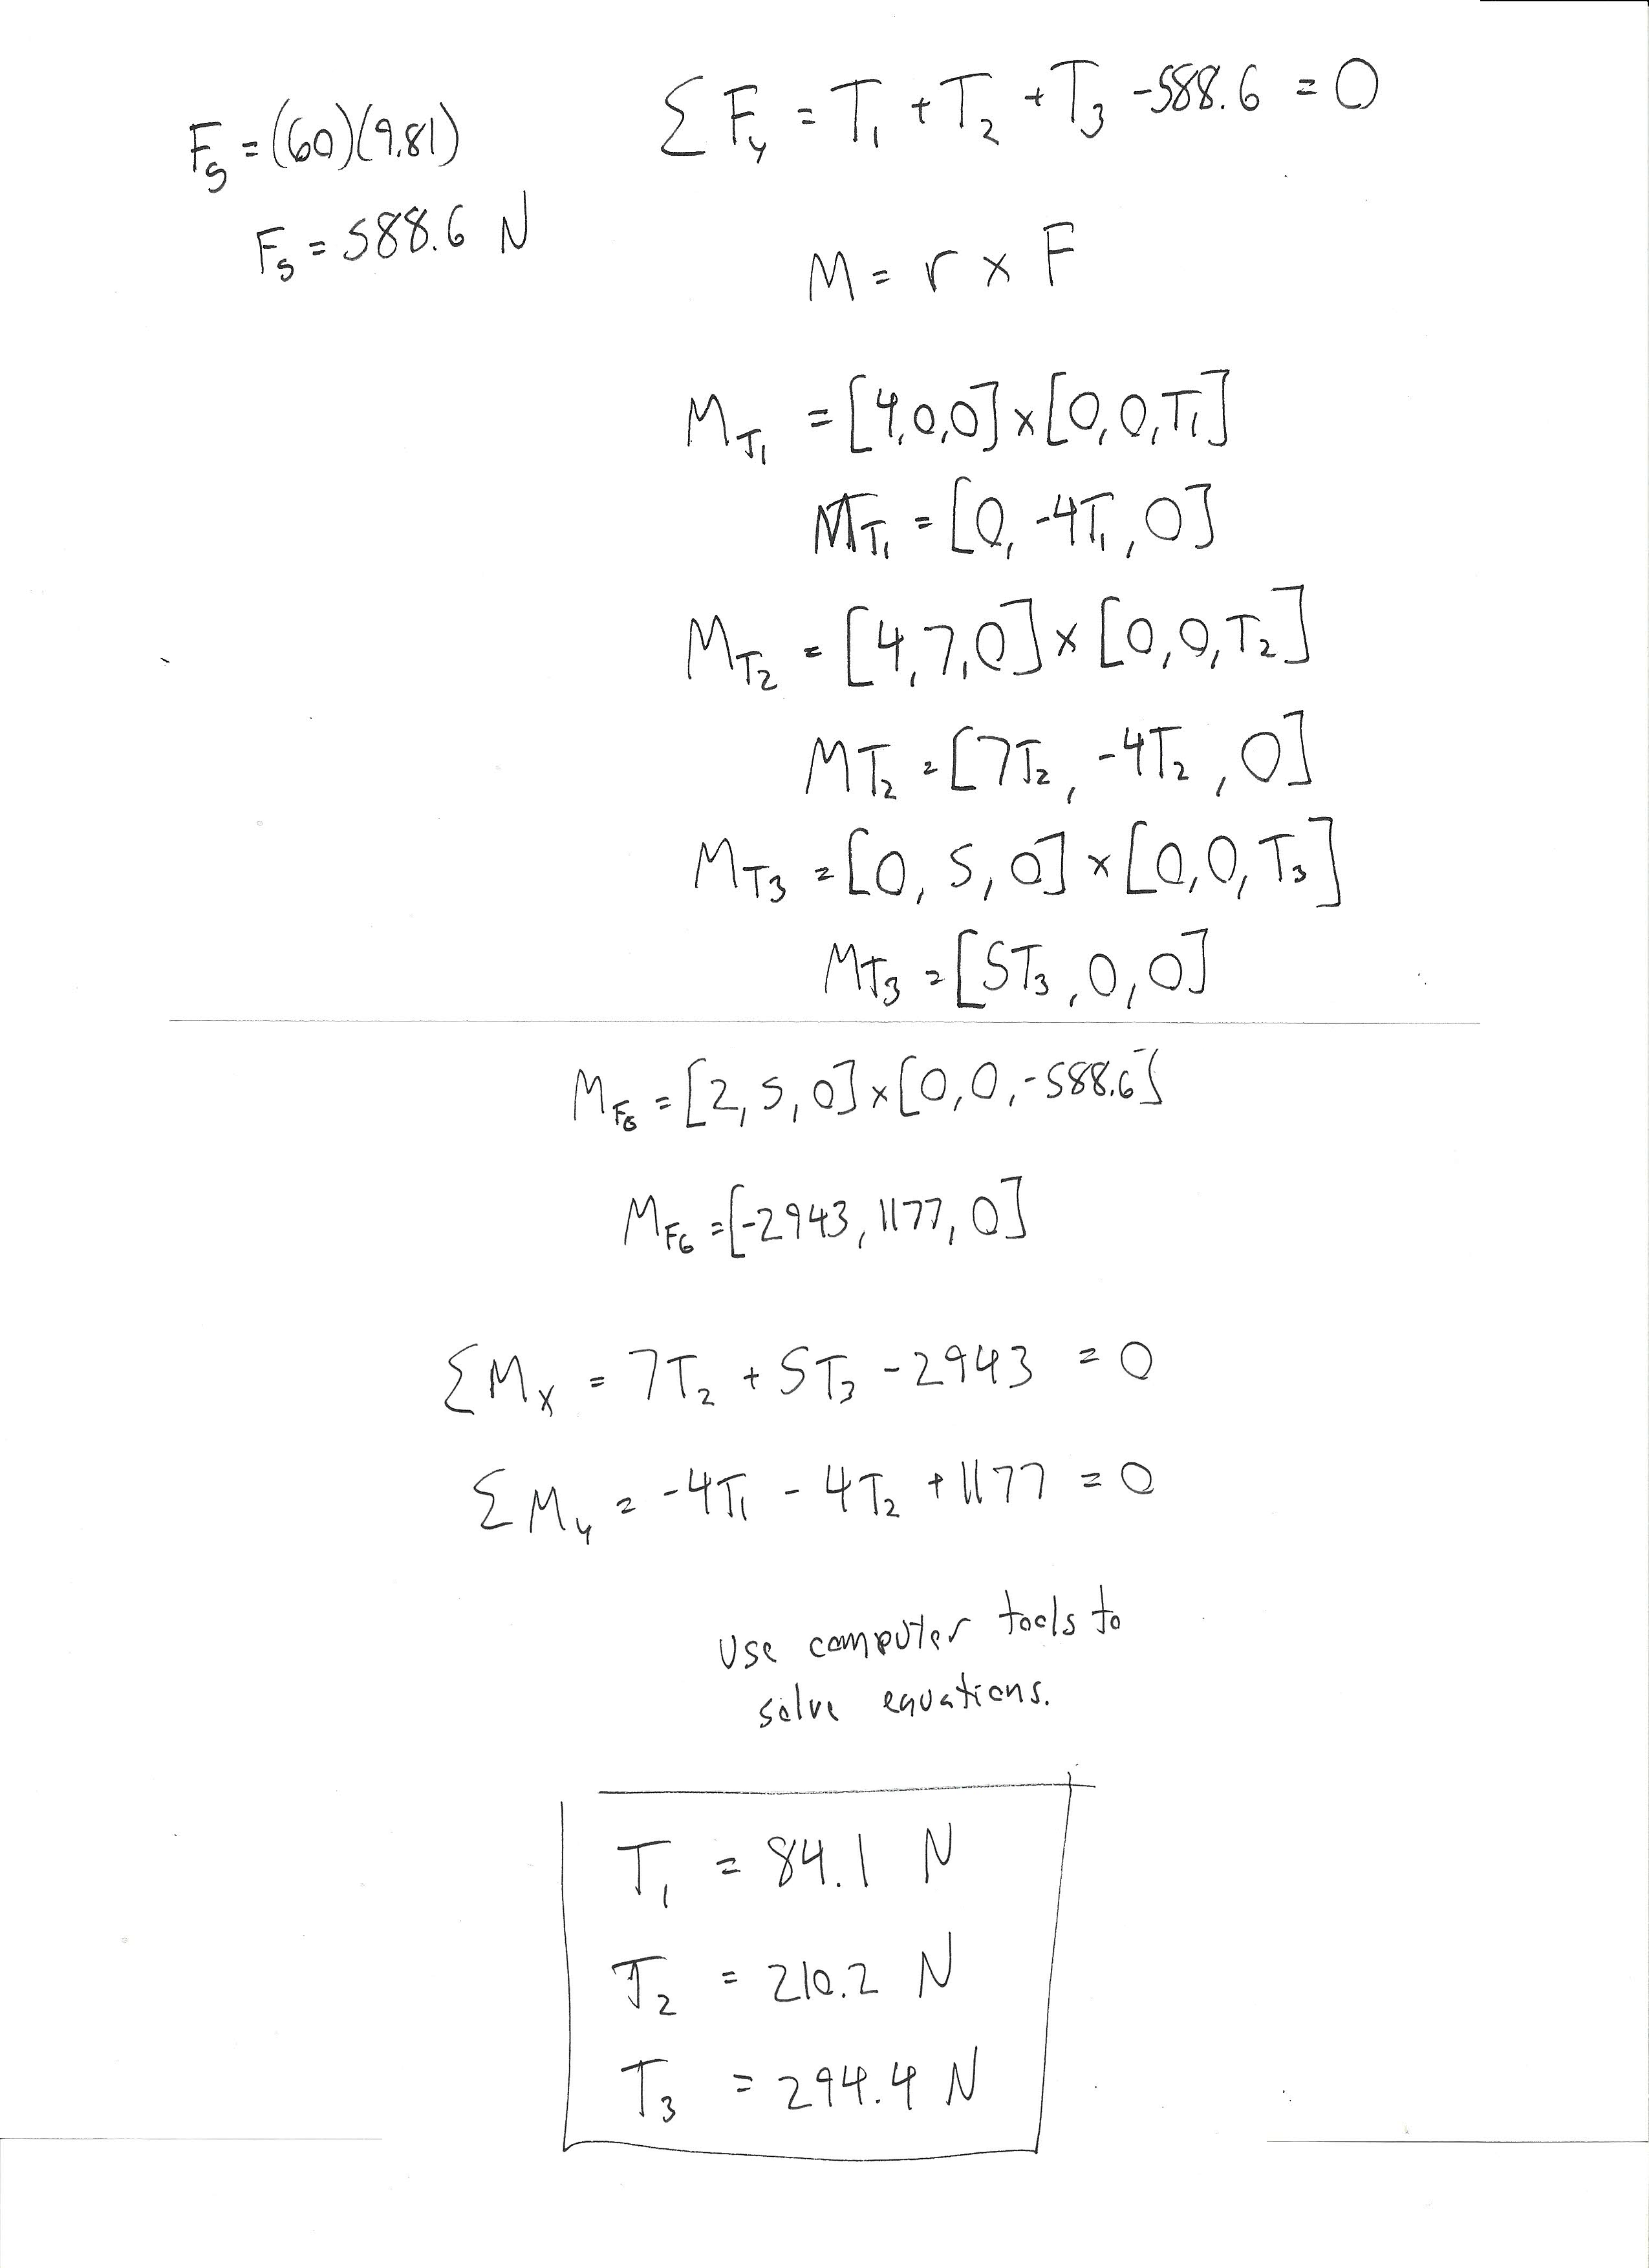 F_g = (60)(9.81)
F_g = 588.6 N
ΣF_y = T_1 + T_2 + T_3 - 588.6 = 0
M = r × F
M_T1 = [4,0,0] × [0,0,T_1]
M_T1 = [0, -4T_1, 0]
M_T2 = [4,7,0] × [0,0,T_2]
M_T2 = [7T_2, -4T_2, 0]
M_T3 = [0, 5, 0] × [0,0,T_3]
M_T3 = [5T_3, 0, 0]
M_FG = [2, 5, 0] × [0,0,-588.6]
M_FG = [-2943, 1177, 0]
ΣM_x = 7T_2 + 5T_3 - 2943 = 0
ΣM_y = -4T_1 - 4T_2 + 1177 = 0
Use computer tools to
solve equations.
T_1 = 84.1 N
T_2 = 210.2 N
T_3 = 294.4 N